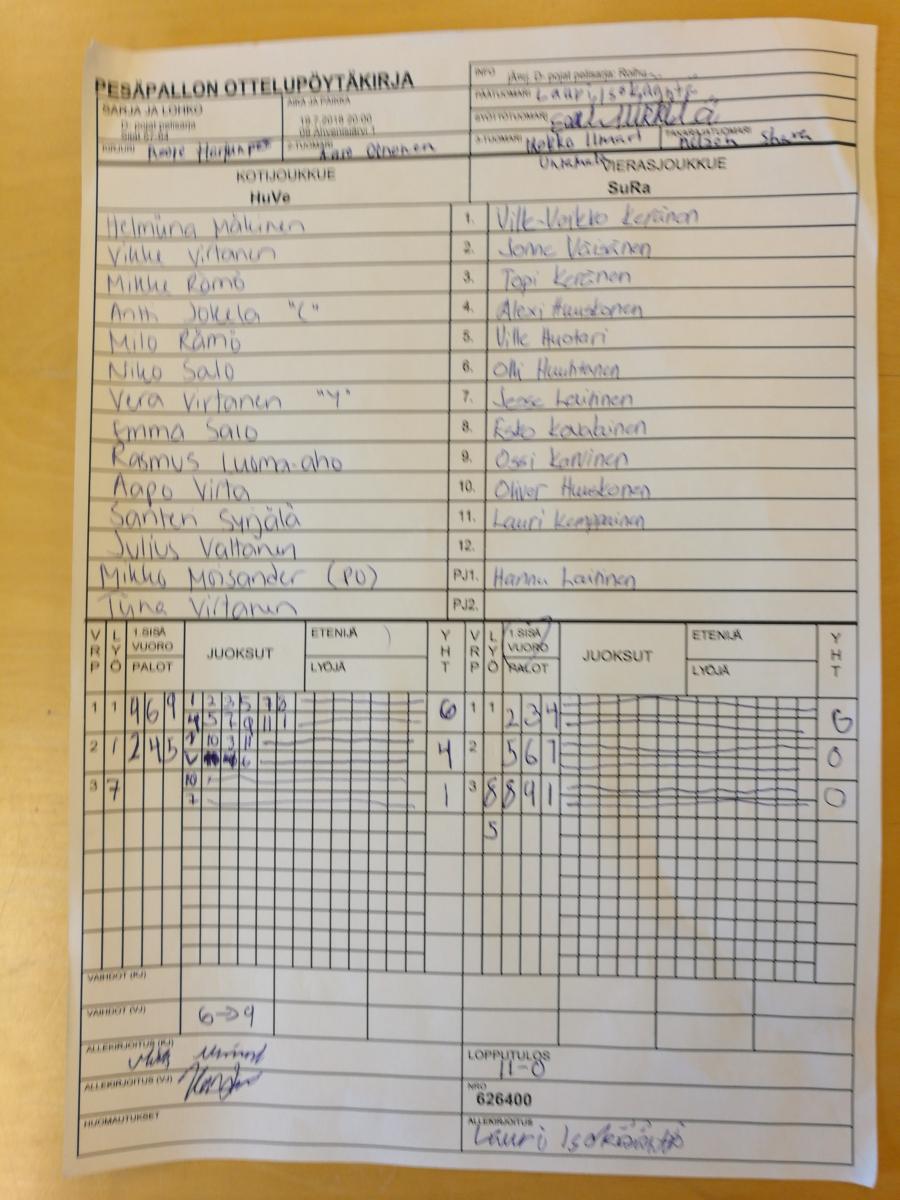 PESÄPALLON OTTELUPÖYTÄKIRJA
INFO
D- pojat pelisarja: Roihu
PÄÄTUOMARI Lauri Isokääntä
SARJA JA LOHKO
D- pojat pelisarja
AIKA JA PAIKKA
19.7.2019 20:00
08 Ahvenisjärvi 1
SYÖTTÖTUOMARI
KIRJURI
2-TUOMARI
3-TUOMARI Kokko Ilmari
TAKARAJATUOMARI
KOTIJOUKKUE
HuVe
VIERASJOUKKUE
SuRa
Helmiina Mäkinen 1. Ville-Veikko Keränen
Vikke Virtanen 2. Jonne Väisänen
Mikke Rämö 3. Topi Keränen
Antti Jokela "C" 4. Alexi Huuskonen
Milo Rämö 5. Ville Huotari
Niko Salo 6. Olli Huuhtanen
Vera Virtanen "Y" 7. Jesse Laitinen
Emma Salo 8. Esko Kovalainen
Rasmus Luoma-aho 9. Ossi Karvinen
Aapo Virta 10. Oliver Huuskonen
Santeri Syrjälä 11. Lauri Kemppainen
Julius Valtanen 12.
Mikko Moisander (PJ) PJ1. Hannu Laitinen
Tiina Virtanen PJ2.
VRP LYÖ 1.SISÄ VUORO PALOT JUOKSUT ETENIJÄ LYÖJÄ YHT VRP LYÖ 1.SISÄ VUORO PALOT JUOKSUT ETENIJÄ LYÖJÄ YHT
1 1 4 6 9 1 2 3 5 7 8 6 1 1 2 3 4 0
4 5 7 9 11 1
2 1 2 4 5 1 10 3 11 4 2 5 6 7 0
3 7 10 1 3 8 8 9 1 0
7
5
VAIHDOT (KJ)
VAIHDOT (VJ) 6→9
ALLEKIRJOITUS (KJ)
LOPPUTULOS
11-0
ALLEKIRJOITUS (VJ)
NRO
626400
HUOMAUTUKSET
ALLEKIRJOITUS
Lauri Isokääntä